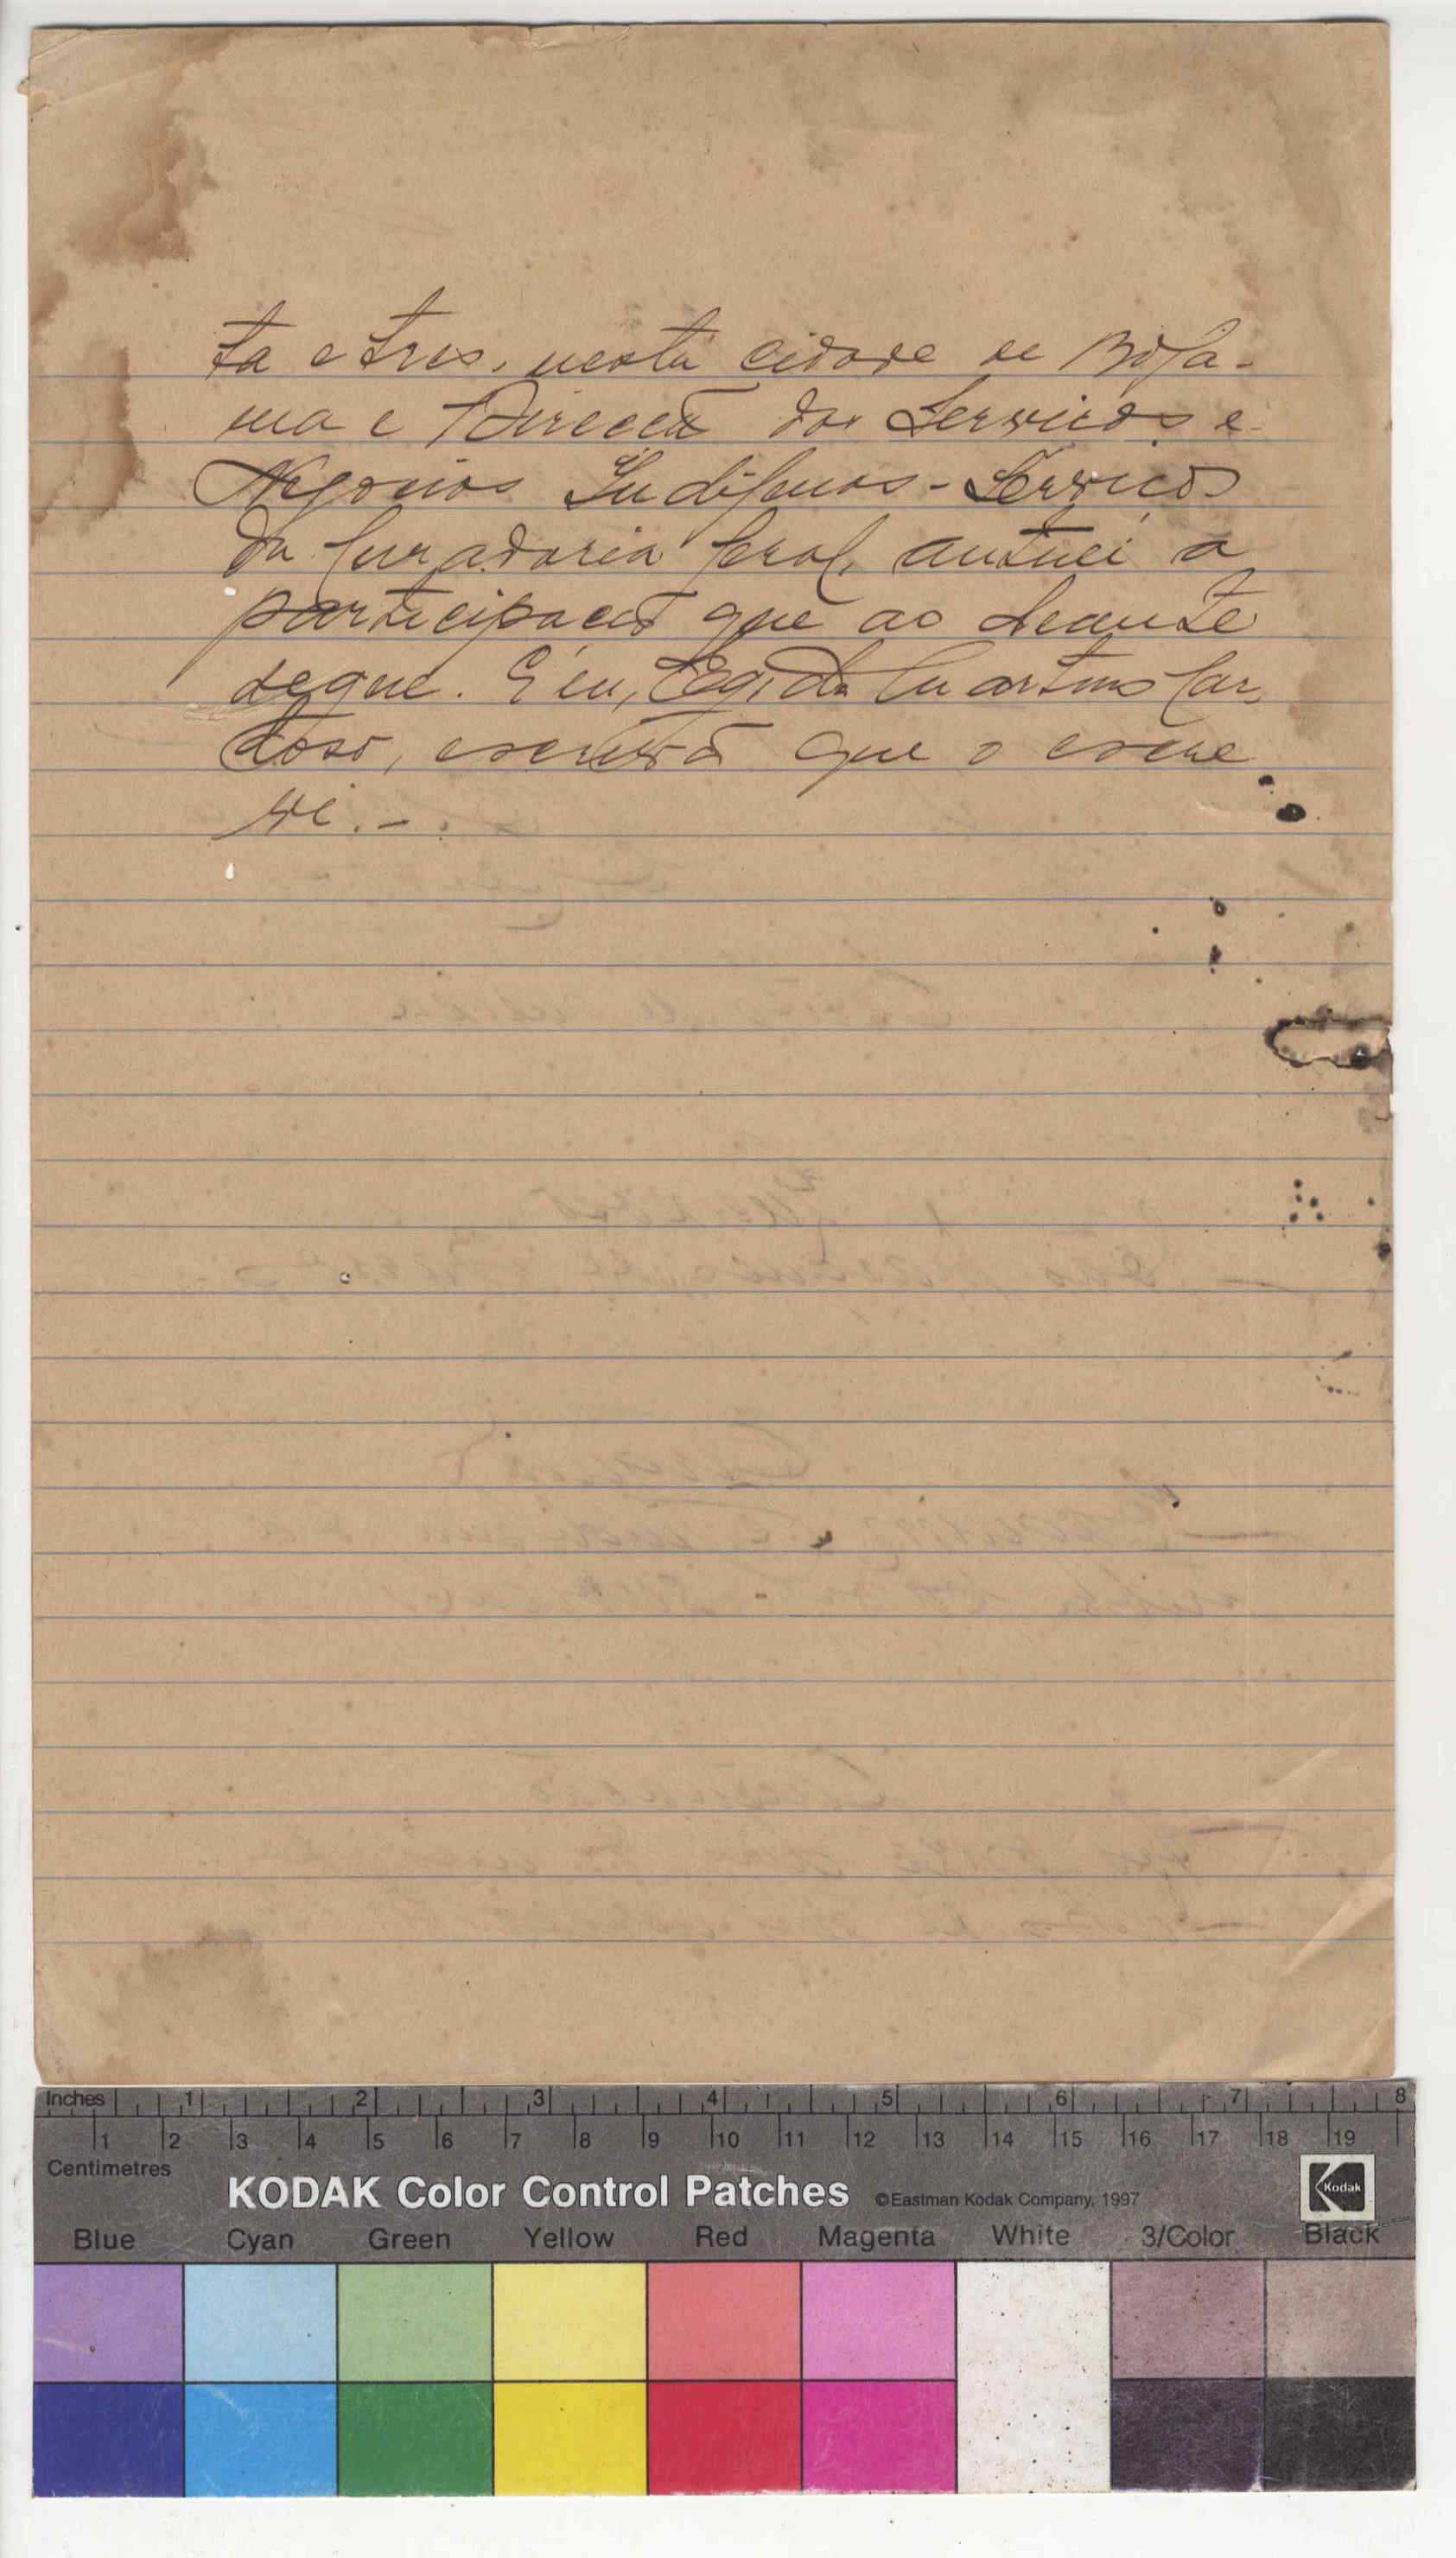 ta e tres, nesta cidade de Bola-
ma e Direcção dos Serviços e
Negocios Indigenas - Serviços
da Curadoria Geral, autuei a
participação que ao deante
segue. E eu, Egidio Martins Car-
doso, escrivão que o escre
vi. -
Inches 1 2 3 4 5 6 7 8
1 2 3 4 5 6 7 8 9 10 11 12 13 14 15 16 17 18 19
Centimetres
KODAK Color Control Patches ©Eastman Kodak Company, 1997 Kodak
Blue Cyan Green Yellow Red Magenta White 3/Color Black